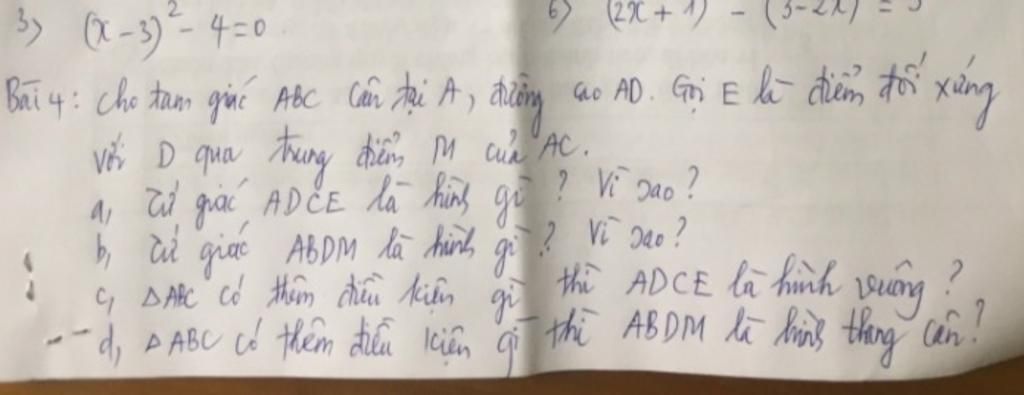 3) (x-3)² - 4 = 0
6) (2x + 1) - (3-2x) =
Bài 4: Cho tam giác ABC cân tại A, đường cao AD. Gọi E là điểm đối xứng
với D qua trung điểm M của AC.
a, Tứ giác ADCE là hình gì? Vì sao?
b, Tứ giác ABDM là hình gì? Vì sao?
c, △ABC có thêm điều kiện gì thì ADCE là hình vuông?
d, △ABC có thêm điều kiện gì thì ABDM là hình thang cân?